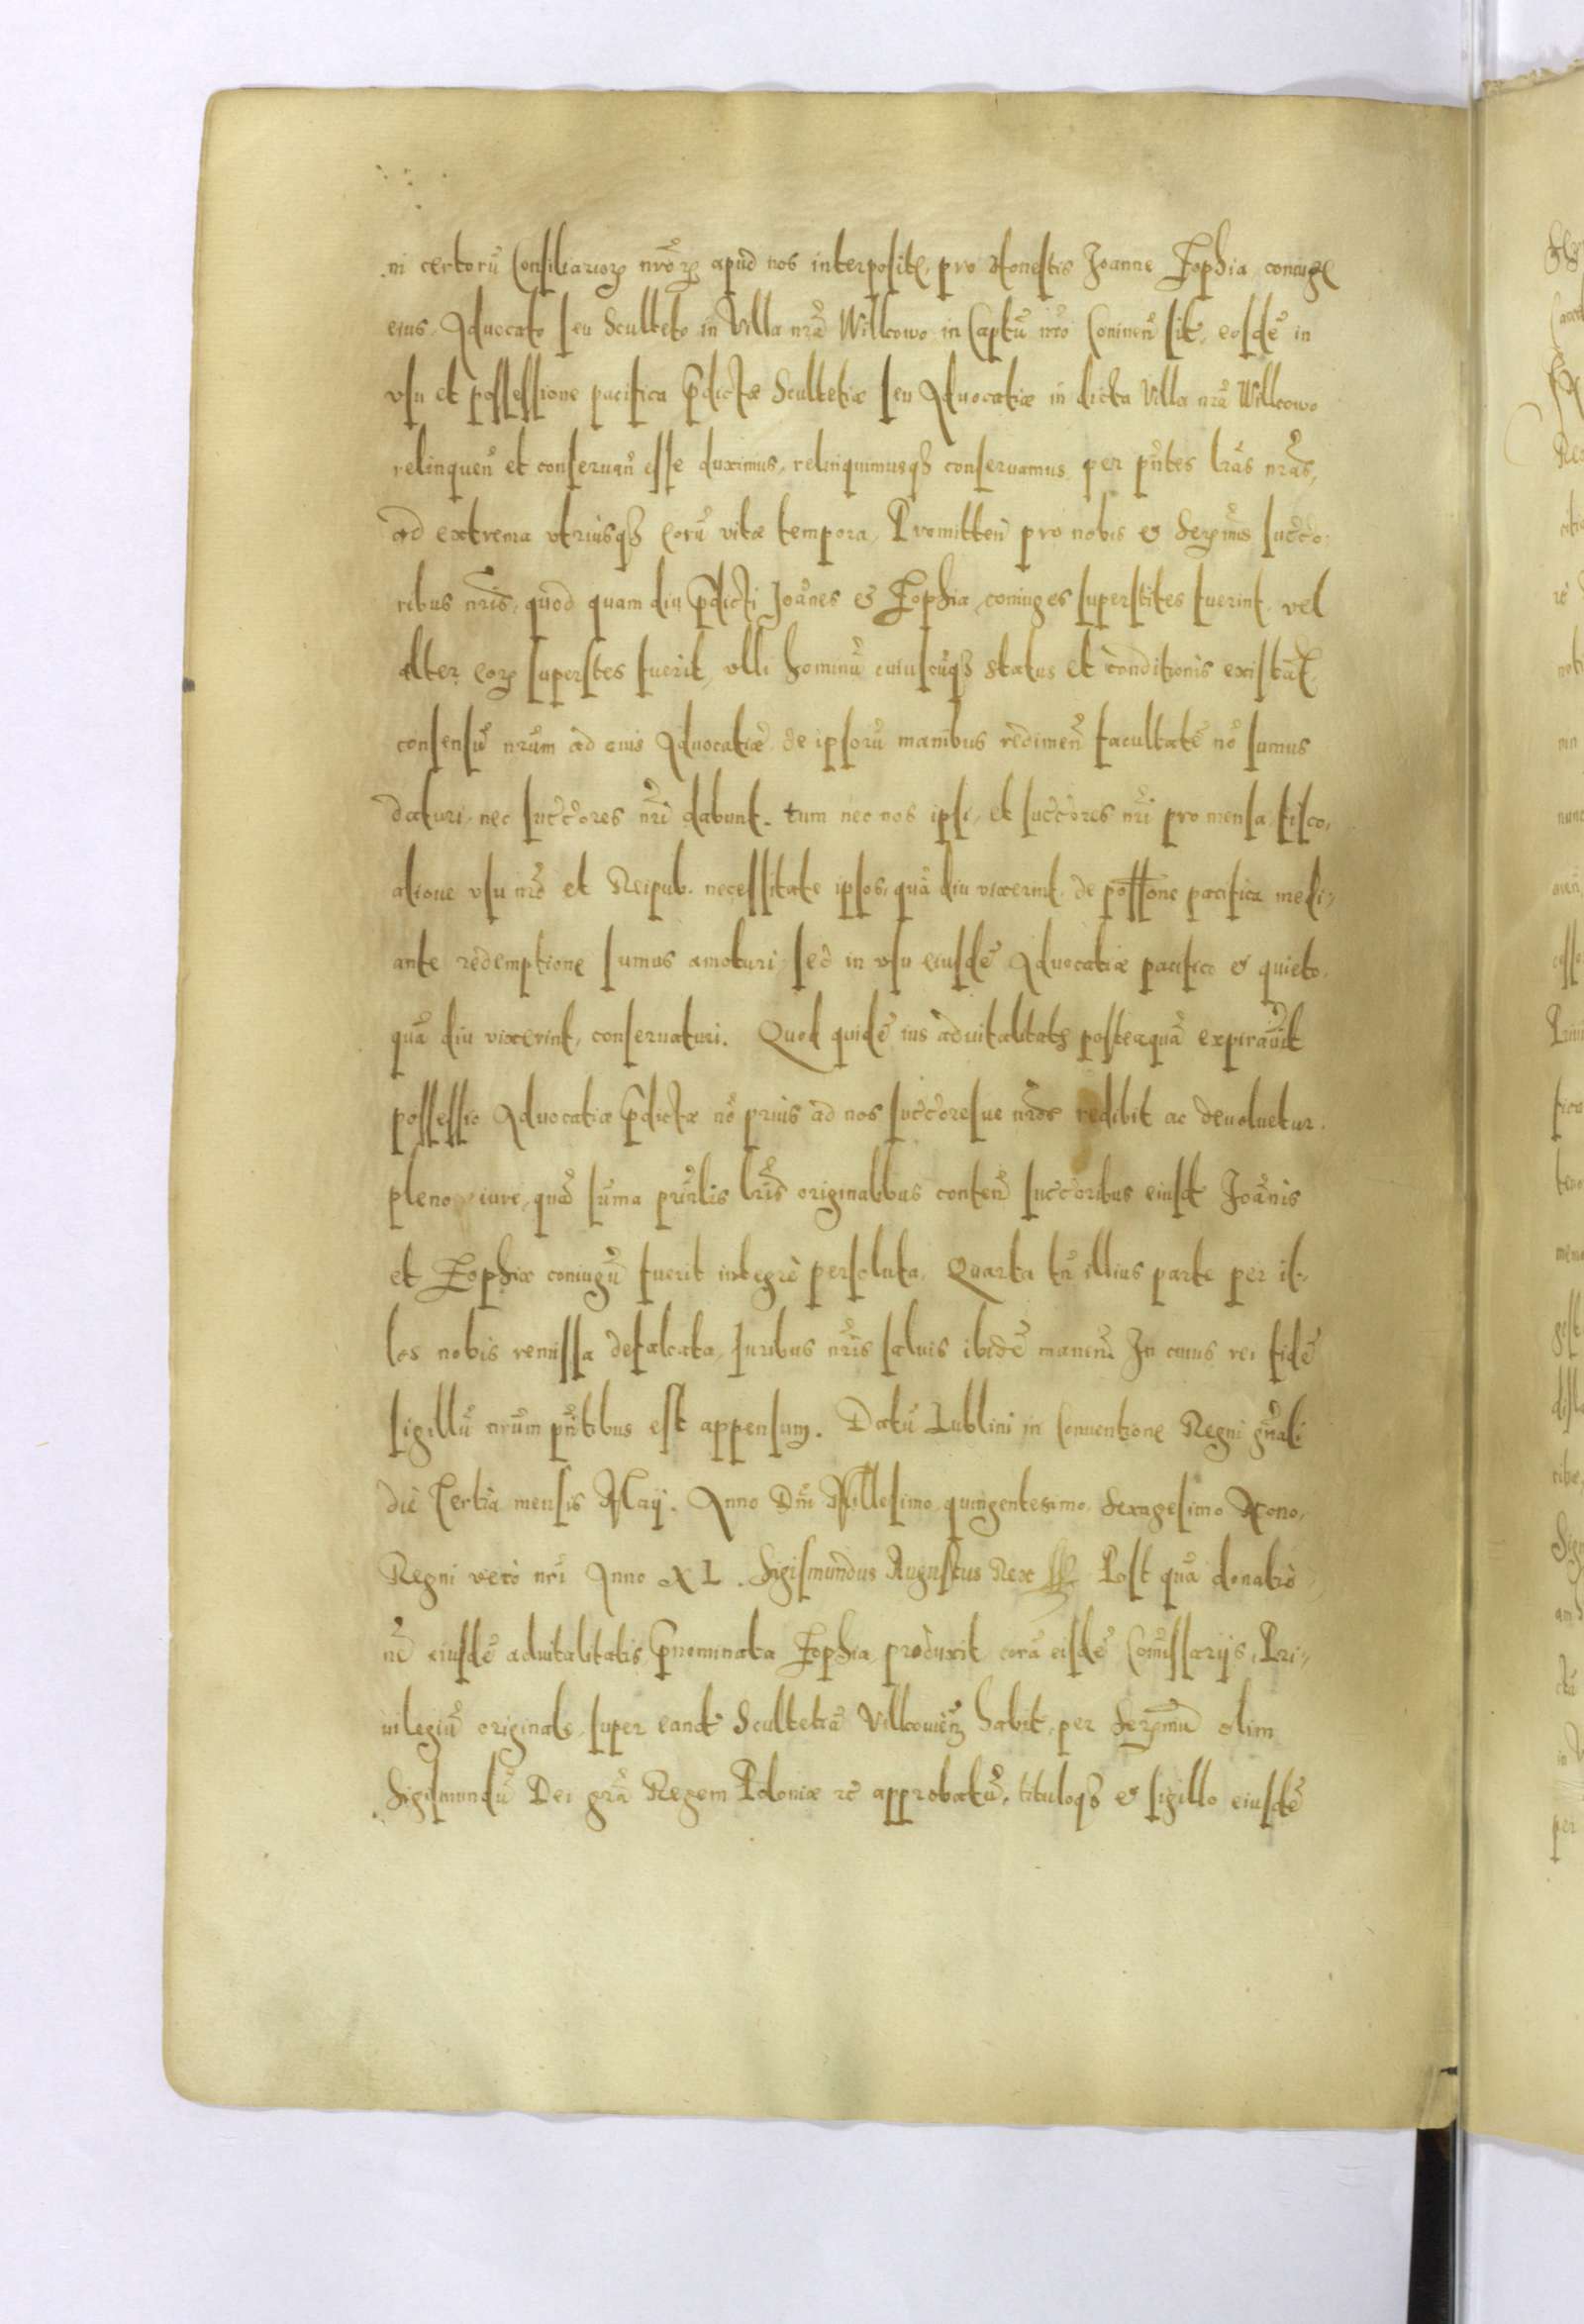 ni certorū Consiliarioꝝ nr̄oꝝ apud nos interposite, pro Honestis Joanne Zophia coniuge
eius Aduocato seu Sculteto in Villa nrā Willcowo in Captū nr̄o Coninen̄ sit, eosdē in
vsu et possessione pacifica p̄dictæ Scultetiæ seu Aduocatiæ in dicta Villa nrā Willcowo
relinquen̄ et conseruan̄ esse duximus, relinquimusqꝫ conseruamus per pn̄tes lrās nrās,
ad extrema vtriusqꝫ eorū vitæ tempora, Promitten̄ pro nobis & Serꝫmis succco-
ribus nrīs, quod quam diu p̄dicti Joānes & Zophia coniuges superstites fuerint vel
alter eoꝝ superstes fuerit, vlli hominū cuiuscūqꝫ status et conditionis existāt,
consensū nrūm ad eius Aduocatiæ de ipsorū manibus redimen̄ facultatē nō sumus
daturi, nec succ̄ores nrī dabunt. tum nec nos ipsi, et succ̄ores nrī pro mensa, fisco,
alione vsu nrō et Reipub. necessitate ipsos, quā diu vixerint, de poss̄one pacifica medi-
ante redemptione sumus amoturi, sed in vsu eiusdē Aduocatiæ pacifico & quieto,
quā diu vixerint, conseruaturi. Quod quidē ius aduitalitatis posteaquā expirauit
possessio Aduocatiæ p̄dictæ nō prius ad nos succ̄oresue nrōs redibit ac deuoluetur
pleno iure, quā sūma priu̅lis lrīs originalibus conten̄ succ̄oribus eiusd̄ Joānis
et Zophiæ coniugū fuerit integrè persoluta, Quarta tn̄ illius parte per il-
los nobis remissa defalcata, Juribus nrīs saluis ibidē manen̄. In cuius rei fidē
sigillū nrūm pn̄tibus est appensum. Datū Lublini in Conuentione Regni gn̄ali
die tertia mensis Maij. Anno Dn̄i Millesimo, quingentesimo, Sexagesimo Nono,
Regni verò nrī Anno XL. Sigismundus Augustus Rex ſſꝫ Post quā donatiō
nē eiusdē aduitalitatis, p̄nominata Zophia produxit corā eisdē Comissarijs, Pri-
uilegiū originale, super eand̄ Scultetiā Villcouien̄ habit, per Serꝫmū olim
Sigismundū Dei grā Regem Poloniæ ꝛc̄ approbatū, tituloqꝫ & sigillo eiusdē